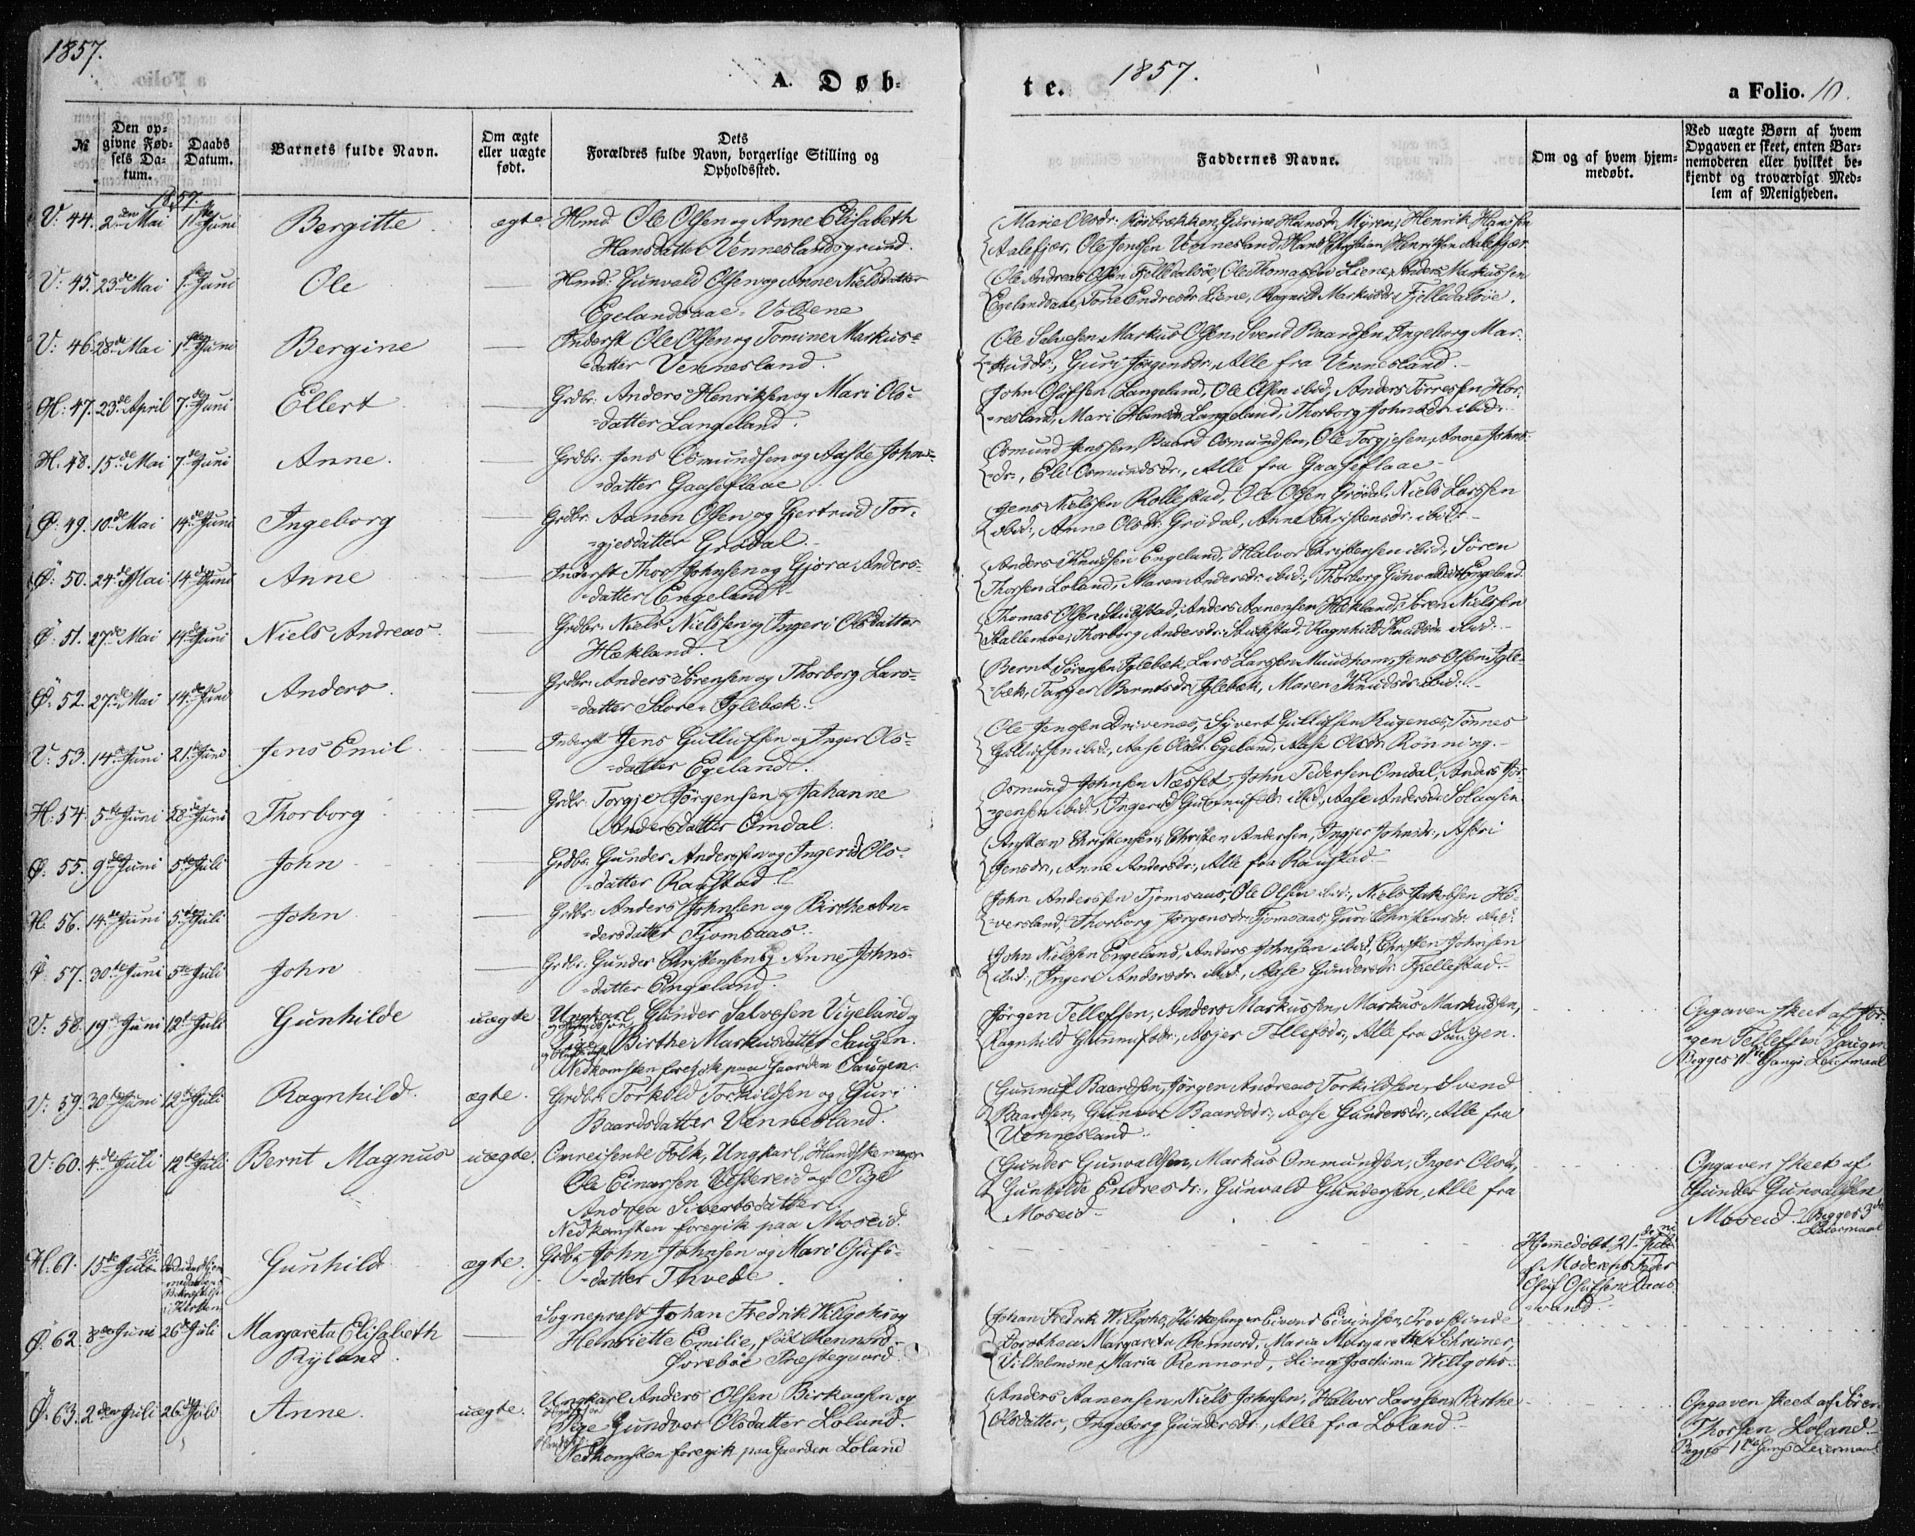 1857.
A. Døb-
te.
1857.
a Folio. 10.
№
Den op-
givne Fød-
sels Da-
tum.
Daabs
Datum.
Barnets fulde Navn.
Om ægte
eller uægte
født.
Dets
Forældres fulde Navn, borgerlige Stilling og
Opholdssted.
Faddernes Navne.
Om og af hvem hjem-
medøbt.
Ved uægte Børn af hvem
Opgaven er skeet, enten Bar-
nemoderen eller hvilket be-
kjendt og troværdigt Med-
lem af Menigheden.
1857.
V: 44. 2den Mai 1ste Juni Bergitte ægte. Hmd Ole Olsen og Anne Elisabeth
Hansdatter Venneslandsgrund.
Marie Olsdr. Gurine Hansdr. Myren, Henrik Hansen
Aalefjær, Ole Jensen Vennesland, Hans Christian Henriksen Aalefjær
V: 45. 23de Mai 1ste Juni Ole — Hmd: Gunvald Olsen og Anne Nielsdatter
Egelandsaae Voldene
Ole Andreas Olsen Fjelledalsøe, Ole Thomassen Liene, Anders Markussen
Egelandsaae, Tone Endresdr. Liene, Ragnild Markusdr. Fjelledalsøe.
V: 46. 28de Mai 1ste Juni Bergine — Inderst Ole Olsen og Tomine Markus-
datter Vennesland.
Ole Salvesen, Markus Olsen, Svend Baardsen, Ingeborg Mar-
kusdr., Guri Jørgensdr., Alle fra Vennesland.
H: 47. 23de April 7de Juni Ellert — Grdbr. Anders Henriksen og Mari Ols-
datter Langeland.
John Olufsen Langeland, Ole Olsen ibid., Anders Torresen Hor-
resland, Mari Hansdr. Langeland, Thorborg Johnsdr. ibid.
H: 48. 15de Mai 7de Juni Anne. — Grdbr. Jens Osmundsen og Aaste Johns-
datter Gaaseflaae
Osmund Jenssen, Baard Osmundsen, Ole Torgjesen, Anne Johns-
dr., Eli Osmundsdr., Alle fra Gaaseflaae
Ø: 49. 10de Mai 14de Juni Ingeborg — Grdbr. Aanen Olsen og Gjertrud Tor-
gjesdatter Grødal.
Jens Nielsen Rollestad, Ole Olsen Grødal, Niels Larssen
ibid., Anne Olsdr. Grødal, Anne Christensdr. ibid.
Ø: 50. 24de Mai 14de Juni Anne — Inderst Thor Johnsen og Gjøra Anders-
datter Engeland
Anders Knudsen Engeland, Halvor Christensen ibid., Søren
Thorsen Loland, Maren Andersdr. ibid., Thorborg Gunvaldsdr. Engeland
Ø: 51. 27de Mai 14de Juni Niels Andreas. — Grdbr. Niels Nielssen og Ingeri Olsdatter
Hækland.
Thomas Olsen Stulstad, Anders Aanensen Hækland, Søren Nielssen
Stallemoe, Thorborg Andersdr. Stulstad, Ragnhild Knudsdr. ibid.
Ø: 52. 27de Mai 14de Juni Anders. — Grdbr. Anders Sørensen og Thorborg Lars-
datter Store Iglebæk.
Bernt Sørensen Iglebæk, Lars Larssen Muushom, Jens Olsen Igle-
bæk, Tarjer Berntsdr. Iglebæk, Maren Knudsdr. ibid.
V: 53. 14de Juni 21de Juni Jens Emil — Inderst Jens Gullufsen og Inger Ols-
datter Egeland.
Ole Jenssen Drivenæs, Syvert Gullufsen Rugenæs, Tønnes
Gullufsen ibid., Aase Olsdr. Egeland, Aase Olsdr. Rønning.
H: 54. 5te Juni 28de Juni Thorborg — Grdbr. Torgje Jørgensen og Johanne
Andersdatter Omdal.
Osmund Johnsen Næsset, John Pedersen Omdal, Anders Jør-
gensen ibid., Ingerid Gunnufsdr. ibid., Aase Andersdr. Solaasen
Ø: 55. 9de Juni 5te Juli John — Grdbr. Gunder Andersen og Ingerid Ols-
datter Raustad.
Ansteen Christensen, Christen Andersen, Ingjer Johnsdr., Asbri
Jensdr., Anne Andersdr., Alle fra Raustad
H. 56. 14de Juni 5te Juli John — Grdbr. Anders Johnsen og Birthe An-
dersdatter Tjomsaas.
John Andersen Tjomsaas, Ole Olsen ibid., Niels Jakobsen Hø-
versland, Thorborg Jørgensdr. Tjomsaas, Guri Christensdr. ibid.
Ø. 57. 30te Juni 5te Juli John — Grdbr. Gunder Christensen og Anne Johns-
datter Engeland.
John Nielsen Engeland, Anders Johnsen ibid., Christen Johnsen
ibid., Ingeri Andersdr. ibid., Aase Gundersdr. Fjellestad.
V. 58. 19de Juni 12te Juli Gunhilde uægte Ungkarl Gunder Salvesen Vigeland og
Pige Birthe Markusdatter Saugen.
Nedkomsten foregik paa Gaarden Saugen.
Jørgen Tellefsen, Anders Markussen, Markus Markussen,
Ragnhild Gunnufsdr., Asjer Tellefsdr., Alle fra Saugen.
Opgaven skeet af Jør-
gen Tellefsen Saugen
Begges 1ste Gangs Leiermaal
V: 59. 30te Juni 12te Juli Ragnhild. ægte. Grdbr. Torkild Torkildsen og Guri
Baardsdatter Vennesland.
Gunnuf Baardsen, Jørgen Andreas Torkildsen, Svend
Baardsen, Gunvor Baardsdr., Aase Gundersdr., Alle fra
Vennesland.
V: 60. 4de Juli 12te Juli Bernt Magnus uægte. Omreisende Folk, Ungkarl, Handskemager
Ole Einarsen Vestereid og Pige
Andrea Sivertsdatter.
Nedkomsten foregik paa Moseid.
Gunder Gunvaldsen, Markus Ommundsen, Inger Olsdr.,
Gunhilde Endresdr., Gunvald Gundersen, Alle fra
Moseid
Opgaven skeet af
Gunder Gunvaldsen
Moseid. Begges 3de
Leiermaal
H. 61. 15de Juni Gunhild ægte. Grdbr. John Johnsen og Mari Olufs-
datter Thvede.
Hjemmedøbt 21de Juni
af Moderens Fader
Oluf Olufsen Daas-
vand.
Ø. 62. 8de Juni 26de Juli Margareta Elisabeth
Ryland. — Sognepræst Johan Fredrik Willgohs og
Henriette Emilie, født Rennord
Øvrebøe Præstegaard.
Johan Fredrik Willgohs, Kirkesanger Eivind Eivindsen, Provstinde
Dorothea Margareta Rennord, Maria Margaretha Schreiner,
Vilhelmine Maria Rennord, Lina Joachima Willgohs.
Ø. 63. 2den Juli 26de Juli Anne. uægte. Ungkarl Anders Olsen Birkaasen og
Pige Gundvor Olsdatter Loland.
Nedkomsten foregik paa Gaarden Loland
Anders Aanensen, Niels Johnsen, Halvor Larssen, Berthe
Olsdatter, Ingeborg Gundersdr., Alle fra Loland.
Opgaven skeet af Søren
Thorsen Loland.
Begges 1ste Gangs Leiermaal